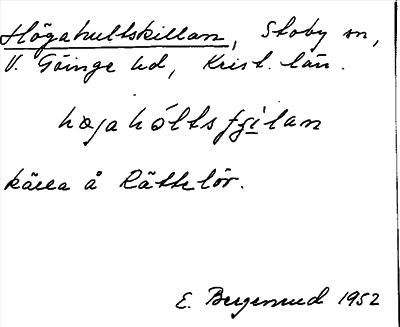 Högahultskillan, Stoby sn,
V. Göinge hd, Krist. län.
højahóltsfʒilan
källa å Rättelöv.
E. Bergerud 1952